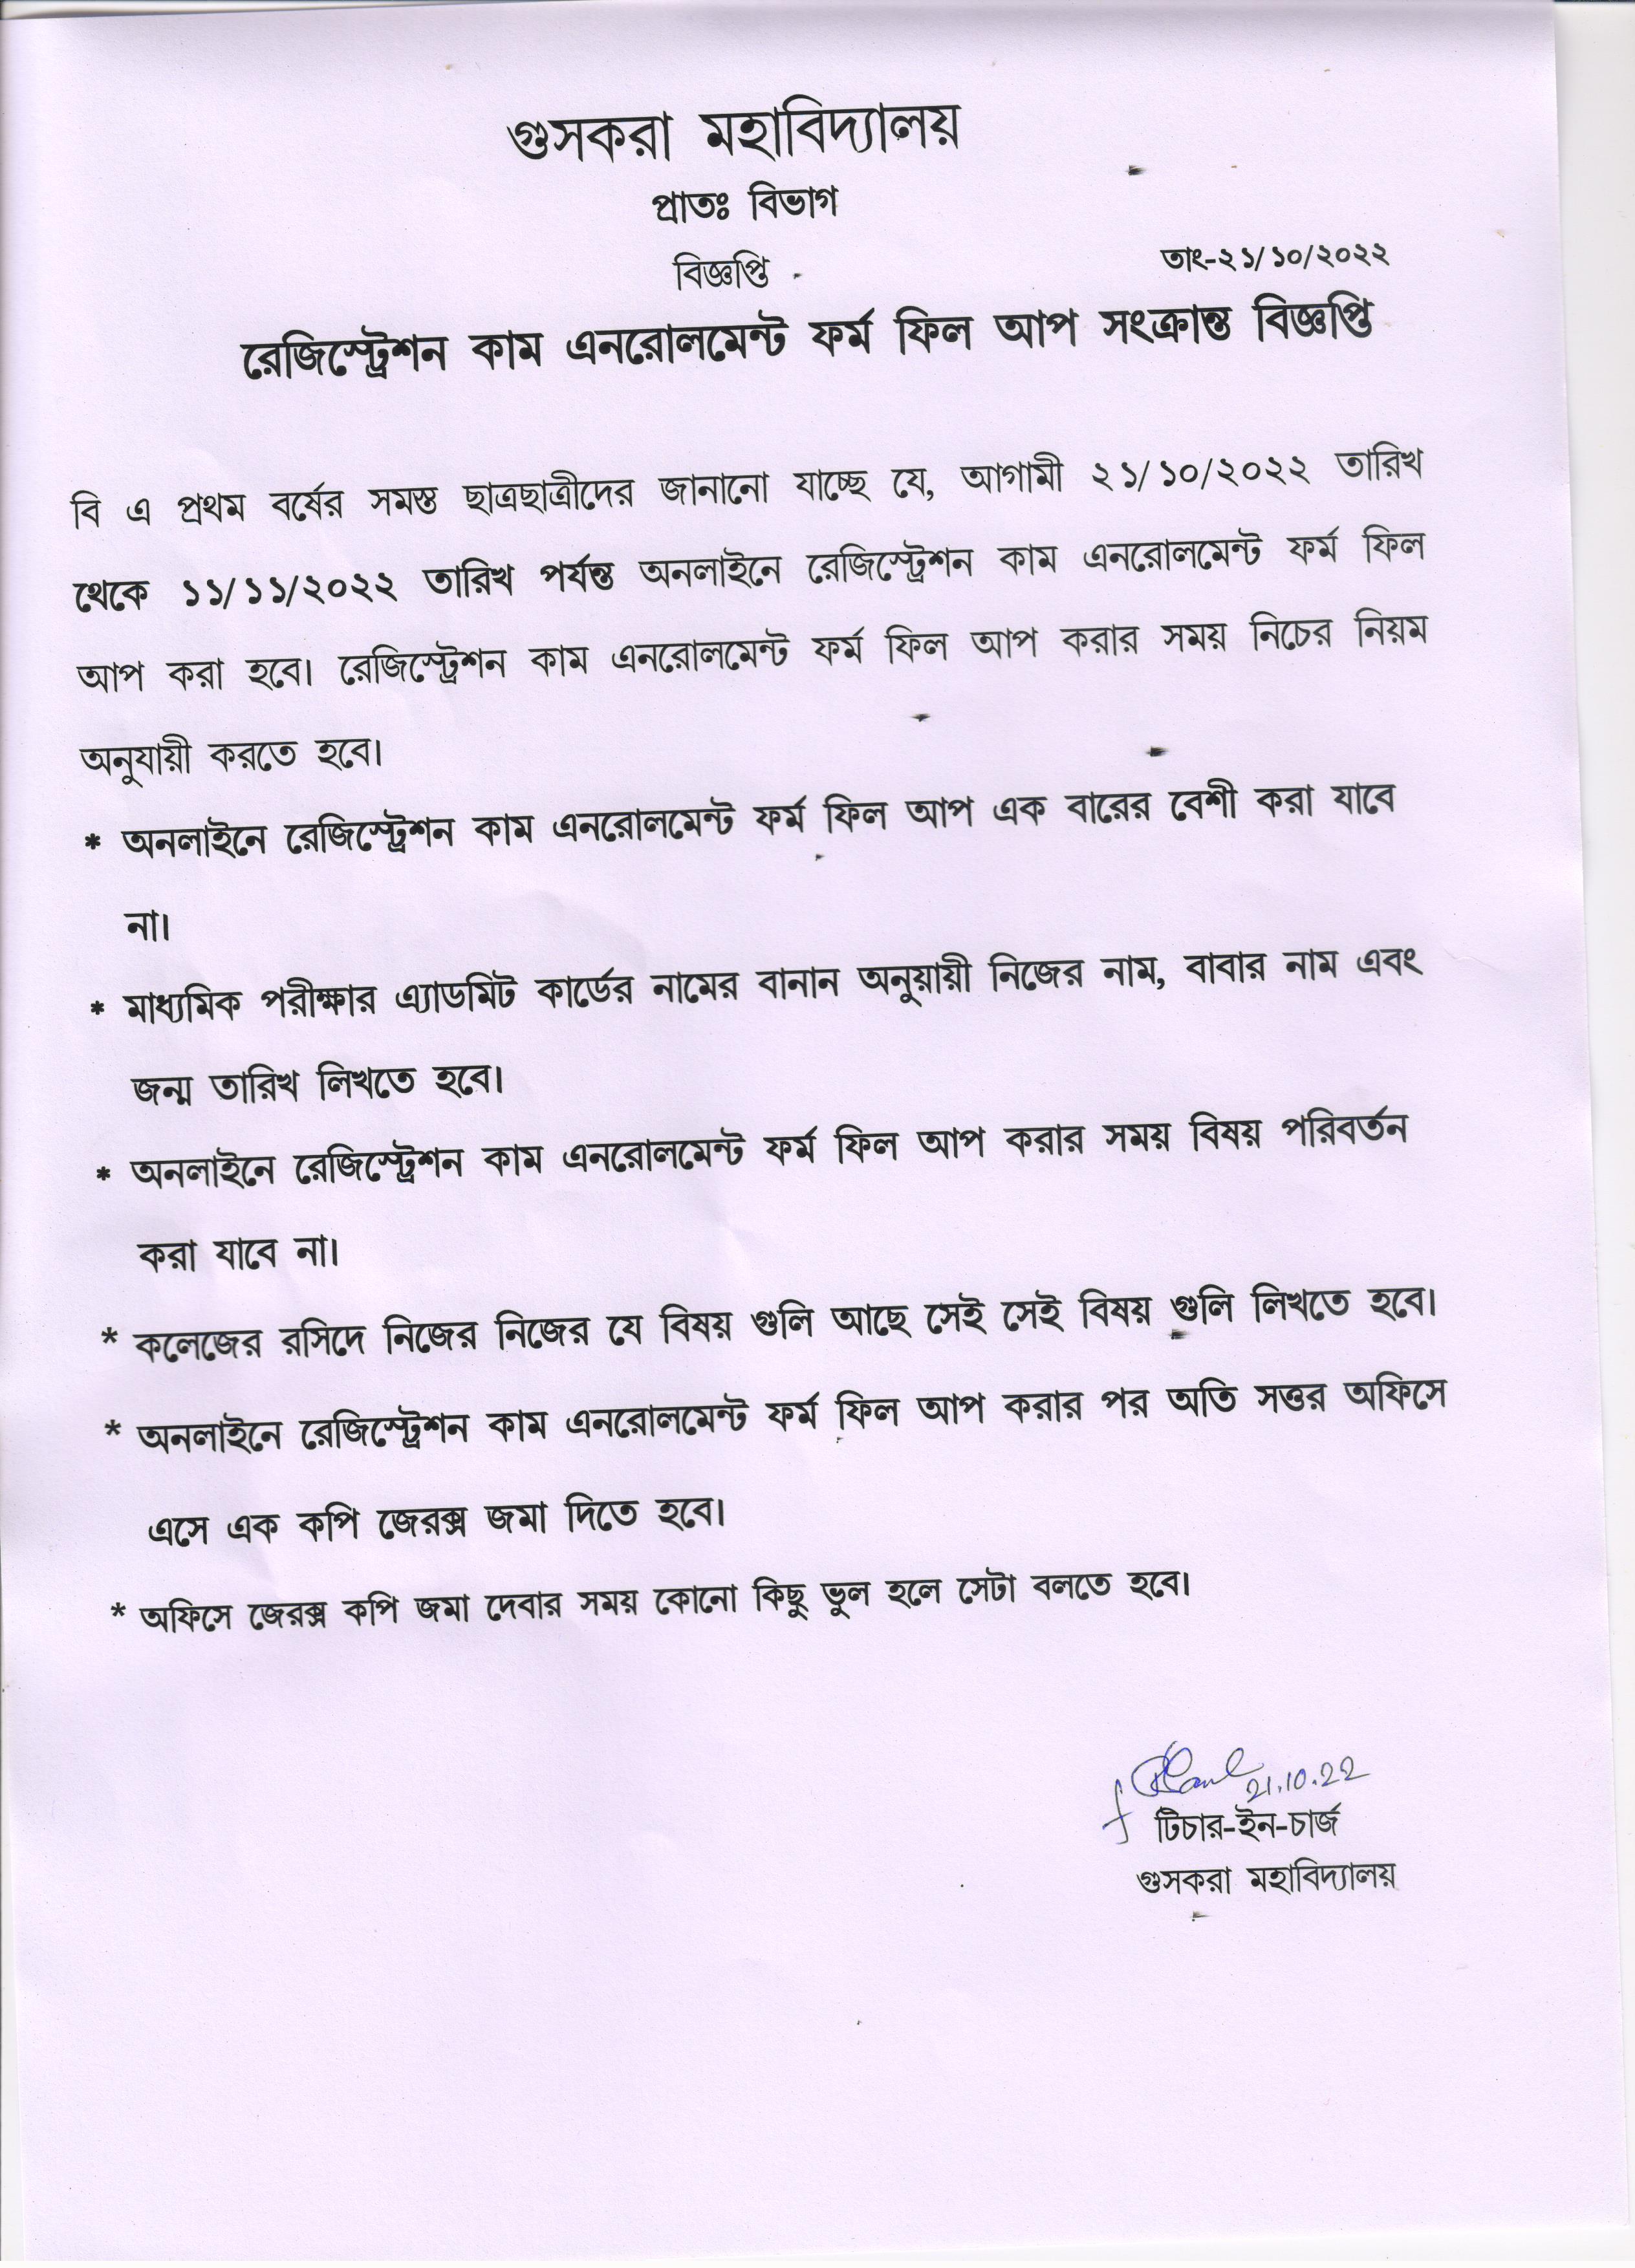 গুসকরা মহাবিদ্যালয়
প্রাতঃ বিভাগ
বিজ্ঞপ্তি
তাং-২১/১০/২০২২
রেজিস্ট্রেশন কাম এনরোলমেন্ট ফর্ম ফিল আপ সংক্রান্ত বিজ্ঞপ্তি
বি এ প্রথম বর্ষের সমস্ত ছাত্রছাত্রীদের জানানো যাচ্ছে যে, আগামী ২১/১০/২০২২ তারিখ
থেকে ১১/১১/২০২২ তারিখ পর্যন্ত অনলাইনে রেজিস্ট্রেশন কাম এনরোলমেন্ট ফর্ম ফিল
আপ করা হবে। রেজিস্ট্রেশন কাম এনরোলমেন্ট ফর্ম ফিল আপ করার সময় নিচের নিয়ম
অনুযায়ী করতে হবে।
* অনলাইনে রেজিস্ট্রেশন কাম এনরোলমেন্ট ফর্ম ফিল আপ এক বারের বেশী করা যাবে
না।
* মাধ্যমিক পরীক্ষার এ্যাডমিট কার্ডের নামের বানান অনুয়ায়ী নিজের নাম, বাবার নাম এবং
জন্ম তারিখ লিখতে হবে।
* অনলাইনে রেজিস্ট্রেশন কাম এনরোলমেন্ট ফর্ম ফিল আপ করার সময় বিষয় পরিবর্তন
করা যাবে না।
* কলেজের রসিদে নিজের নিজের যে বিষয় গুলি আছে সেই সেই বিষয় গুলি লিখতে হবে।
* অনলাইনে রেজিস্ট্রেশন কাম এনরোলমেন্ট ফর্ম ফিল আপ করার পর অতি সত্তর অফিসে
এসে এক কপি জেরক্স জমা দিতে হবে।
* অফিসে জেরক্স কপি জমা দেবার সময় কোনো কিছু ভুল হলে সেটা বলতে হবে।
21.10.22
টিচার-ইন-চার্জ
গুসকরা মহাবিদ্যালয়